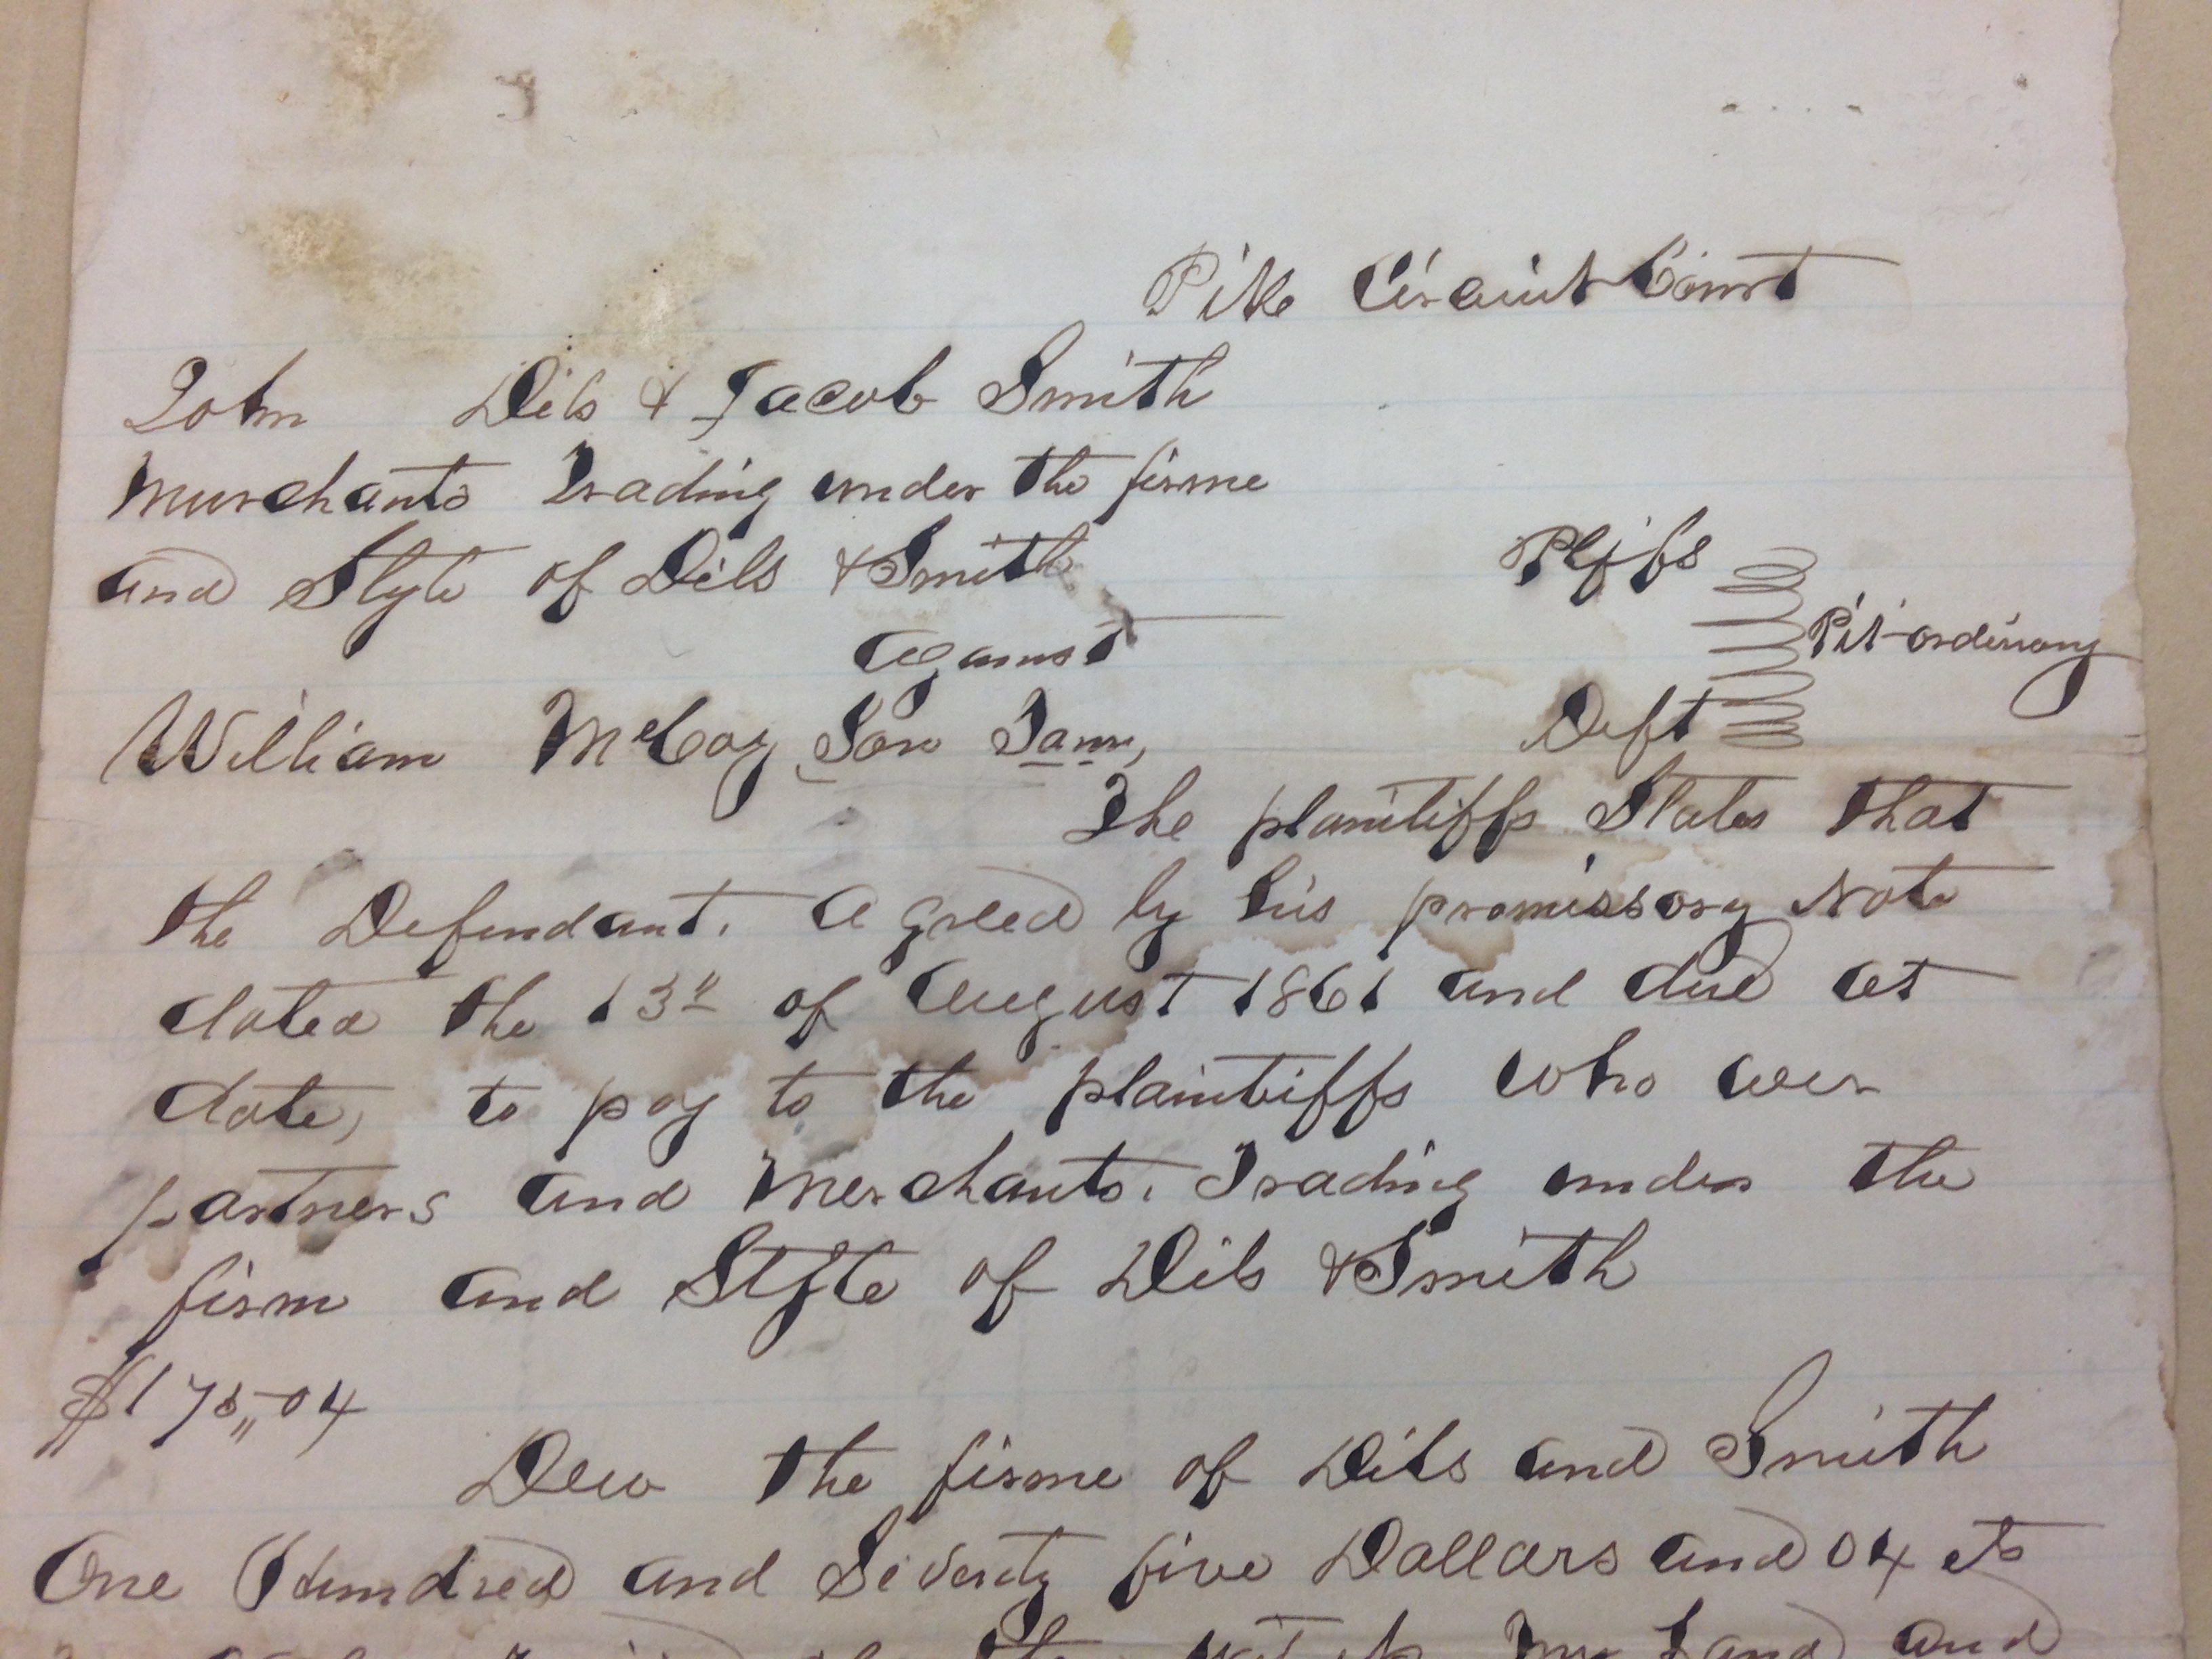 Pike Circuit Court
John Dils & Jacob Smith
Murchants Trading under the firme
and Style of Dils & Smith Plffs
against Pet ordinary
William McCoy Son Sam, Deft
The plaintiffs States that
the Defendant. agreed by his promissory Note
dated the 13th of August 1861 and due at
date, to pay to the plaintiffs who wer
partners and Merchants. Trading under the
firm and Style of Dils & Smith
$175,,04
Dew the firme of Dils and Smith
One Hundred and Seventy five Dollars and 04 cts
my hand and